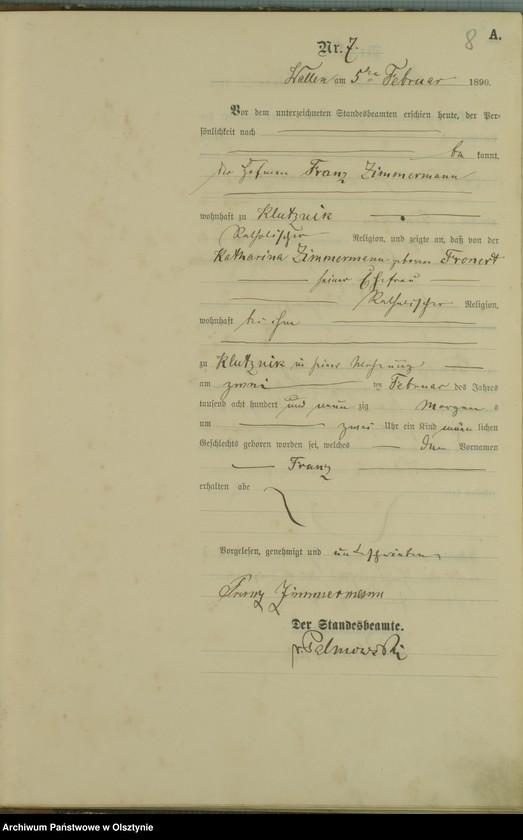 8 A.
Nr. 7.
Wallen am 5ten Februar 1890.
Vor dem unterzeichneten Standesbeamten erschien heute, der Per-
sönlichkeit nach
be kannt,
der Hofmann Franz Zimmermann
wohnhaft zu Klutznik
Katholischer Religion, und zeigte an, daß von der
Katharina Zimmermann geborenen Fronert
seiner Ehefrau
Katholischer Religion,
wohnhaft bei ihm
zu Klutznik in seiner Wohnung
am zwei ten Februar des Jahres
tausend acht hundert und neun zig Morgen s
um zwei Uhr ein Kind männ lichen
Geschlechts geboren worden sei, welches den Vornamen
Franz
erhalten abe
Vorgelesen, genehmigt und unterschrieben
Franz Zimmermann
Der Standesbeamte.
v. Palmowski
Archiwum Państwowe w Olsztynie